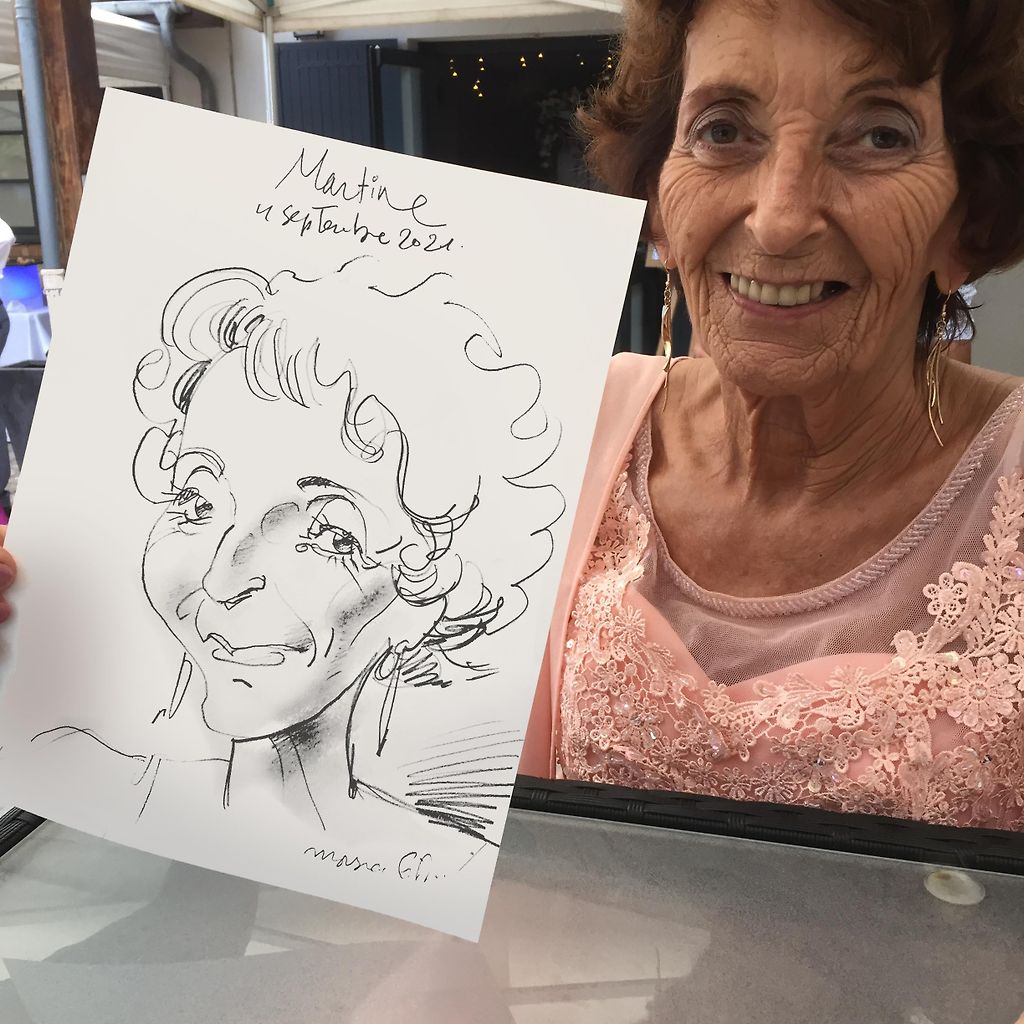 Martine
11 septembre 2021.